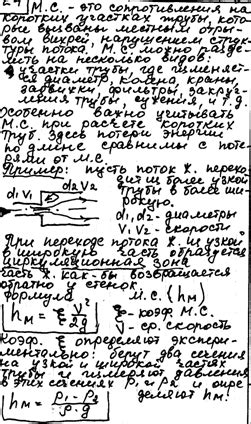 М.С. - это сопротивления на
коротких участках трубы, кото-
рые вызваны местным отры-
вом вихрей, нарушением струк-
туры потока. М.С. можно разде-
лить на несколько видов:
участки трубы, где изменяет-
ся диаметр, колена, краны,
задвижки, фильтры, закруг-
ления трубы, сужения, и т.д.
Особенно важно учитывать
М.С. при расчете коротких
труб. Здесь потери энергии
по длине сравнимы с поте-
рями от м.с.
Пример: пусть поток ж. перехо-
дит из более узкой
трубы в более ши-
рокую.
d1 V1 d2 V2
d1, d2 - диаметры
V1, V2 - скорости
При переходе потока ж. из узкой
в широкую часть образуется
циркуляционная зона
часть ж. как-бы возвращается
обратно у стенок.
формула м.с. (hм)
hм = ξ V²/2g
ξ - коэф. М.С.
V - ср. скорость
Коэф. ξ определяют экспери-
ментально: берут два сечения
на узкой и широкой частях
трубы и измеряют давления
в этих сечениях P1 и P2 и опре-
деляют hм.
hм = P1 - P2 / ρ·g